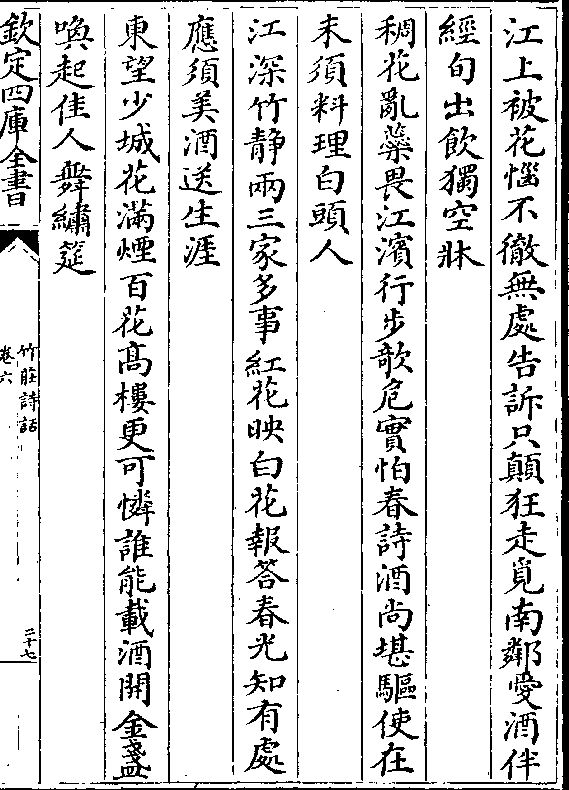 江上被花惱不徹無處告訴只顛狂走覓南鄰愛酒伴
經旬出飲獨空牀
稠花亂蘂畏江濱行步欹危實怕春詩酒尚堪驅使在
未須料理白頭人
江深竹静兩三家多事紅花映白花報答春光知有處
應須美酒送生涯
東望少城花滿煙百花髙樓更可憐誰能載酒開金盞
喚起佳人舞繡筵
欽定四庫全書
竹莊詩話
卷六
二十七